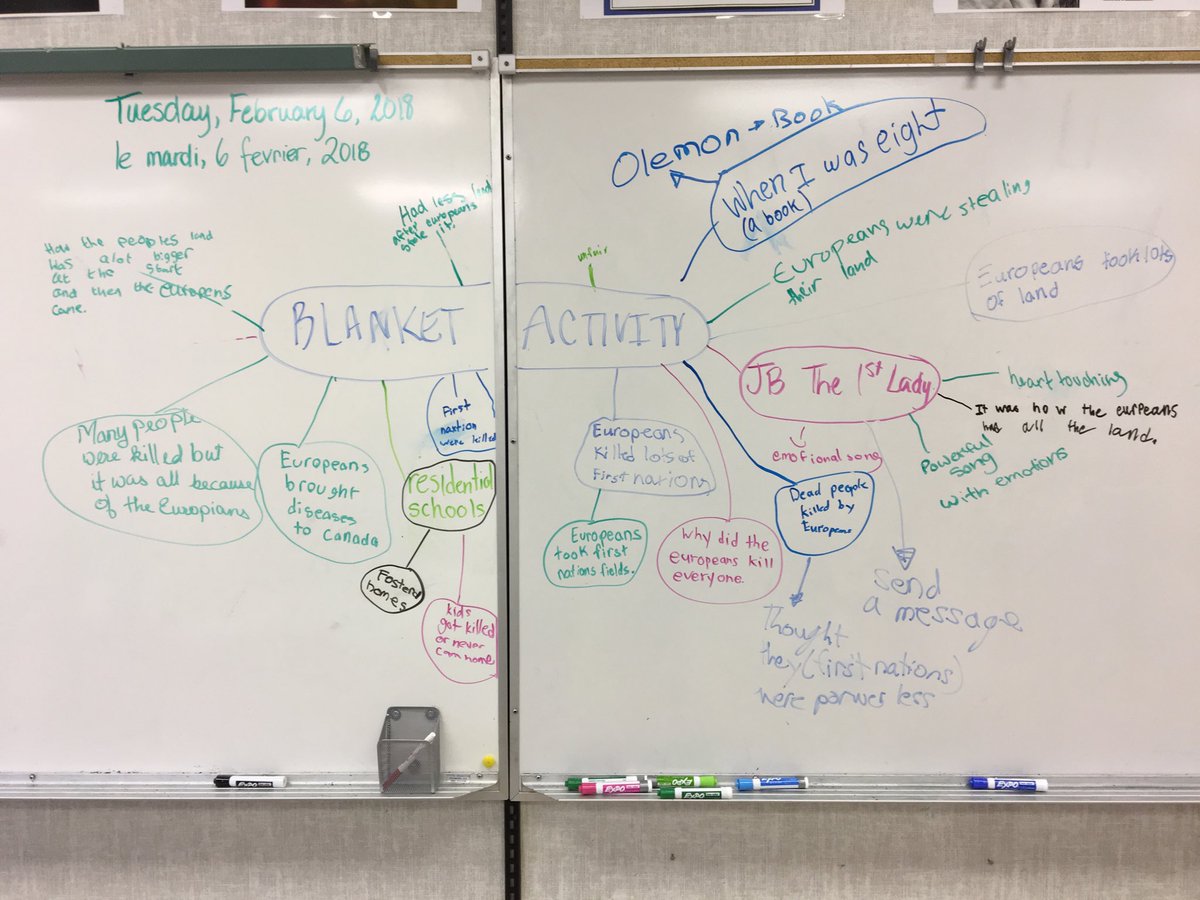 Tuesday, February 6, 2018
le mardi, 6 fevrier, 2018
BLANKET ACTIVITY
How the peoples land
was alot bigger
at the start
and then the Europens
came.
Had less land
after europeans
stole it.
unfair
Olemon → Book
When I was eight
(a book)
Europeans were stealing
their land
Europeans took lots
of land
JB The 1st Lady
heart touching
It was how the eurpeans
has all the land.
Powerful
song
with emotions
emotional song
Send
a message
Many people
were killed but
it was all because
of the Europians
Europeans
brought
diseases
to Canada
residential
schools
Fosterd
homes
kids
got killed
or never
came home
First
nartion
were killed
Europeans
killed lots of
First nations
Europeans
took first
nations fields.
Why did the
europeans kill
everyone.
Dead people
killed by
Europeans
Thought
they (first nations)
were power less
EXPO
EXPO
EXPO
EXPO
EXPO
EXPO